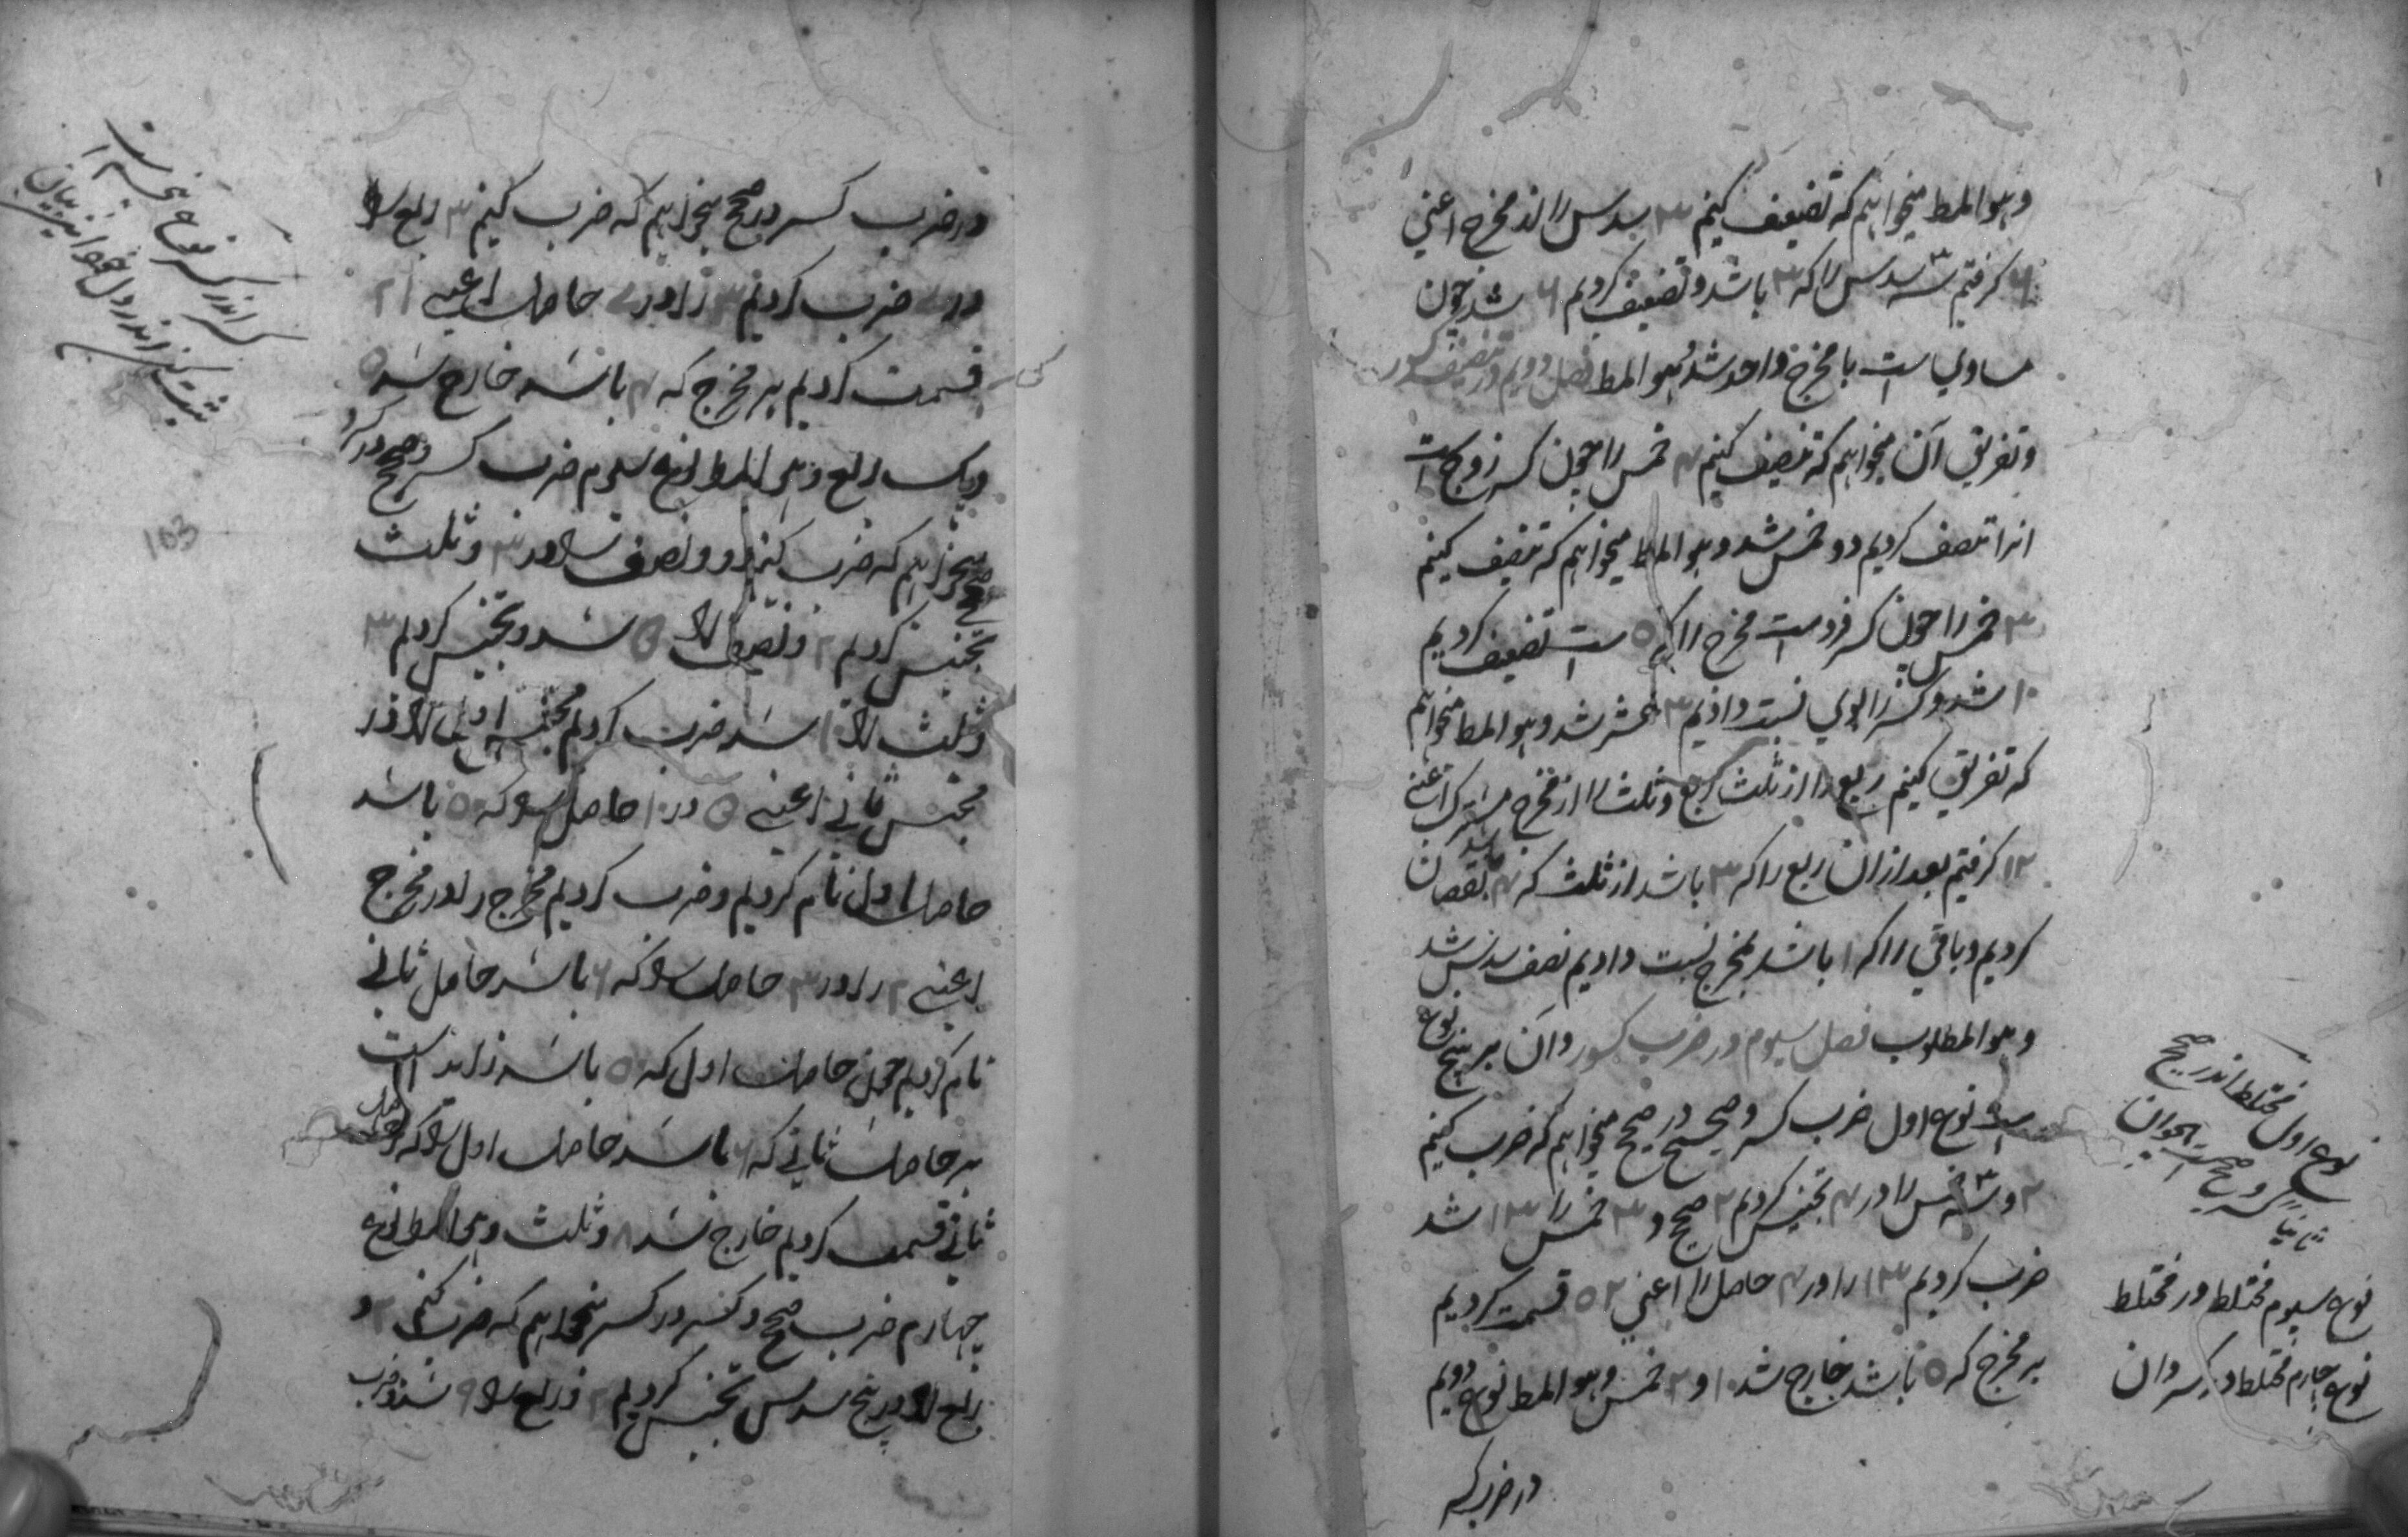 وهو المط میخواهیم که تضعیف کنیم ۳ سدس را از مخرج اعنی
۶ گرفتیم سه سدس را که ۳ باشد و تضعیف کردیم ۶ شد چون
مساوی است با مخرج واحد شد وهو المط فصل دویم در تنصیف کسور
و تفریق آن میخواهیم که تنصیف کنیم ۴ خمس را چون کسر زوج است
انرا تنصف کردیم دو خمس شد وهو المط میخواهیم که تنصیف کنیم
۳ خمس را چون کسر فرد است مخرج را که ۵ است تضعیف کردیم
۱۰ شد و کسر را بوی نسبت دادیم ۳ عشر شد وهو المط میخواهیم
که تفریق کنیم ربع را از ثلث ربع و ثلث را از مخرج مشترک اعنی
۱۲ گرفتیم بعد از ان ربع را که ۳ باشد از ثلث که ۴ باشد نقصان
کردیم و باقی را که ۱ باشد بمخرج نسبت دادیم نصف سدس شد
وهو المطلوب فصل سیوم در ضرب کسور و آن بر پنج نوع
است نوع اول ضرب کسر و صحیح در صحیح میخواهیم که ضرب کنیم
۲ و سه خمس را در ۴ تجنیس کردیم ۲ صحیح و ۳ خمس را ۱۳ شد
ضرب کردیم ۱۳ را در ۴ حاصل را اعنی ۵۲ قسمت کردیم
بر مخرج که ۵ باشد خارج شد ۱۰ و ۲ خمس وهو المط نوع دویم
در ضرب کسر
نوع اول مختلط اندر صحیح
کسر و صحیح است بخوان
ثانیا
نوع سیوم مختلط در مختلط
نوع چارم مختلط در کسر دان
در ضرب کسر در صحیح میخواهیم که ضرب کنیم ۳ ربع را
در ۷ ضرب کردیم ۳ را در ۷ حاصل را اعنی ۲۱
قسمت کردیم بر مخرج که ۴ باشد خارج شد ۵
و یک ربع وهو المط نوع سیوم ضرب کسر و صحیح در کسر و
صحیح میخواهیم که ضرب کنیم دو و نصف را در ۳ و ثلث
تجنیس کردیم ۲ و نصف را ۵ شد و تجنیس کردیم ۳
و ثلث را ۱۰ شد ضرب کردیم مجنس اول را در
مجنس ثانی اعنی ۵ در ۱۰ حاصل را که ۵۰ باشد
حاصل اول نام کردیم و ضرب کردیم مخرج را در مخرج
اعنی ۲ را در ۳ حاصل را که ۶ باشد حاصل ثانی
نام کردیم چون حاصل اول که ۵۰ باشد زاید است
بر حاصل ثانی که ۶ باشد حاصل اول را که بر حاصل
ثانی قسمت کردیم خارج شد ۸ و ثلث وهو المط نوع
چهارم ضرب صحیح و کسر در کسر میخواهیم که ضرب کنیم ۲ و
ربع را در پنج سدس تجنیس کردیم ۲ و ربع را ۹ شد و ضرب
کسر اندر کسر نوع پنجم است
103